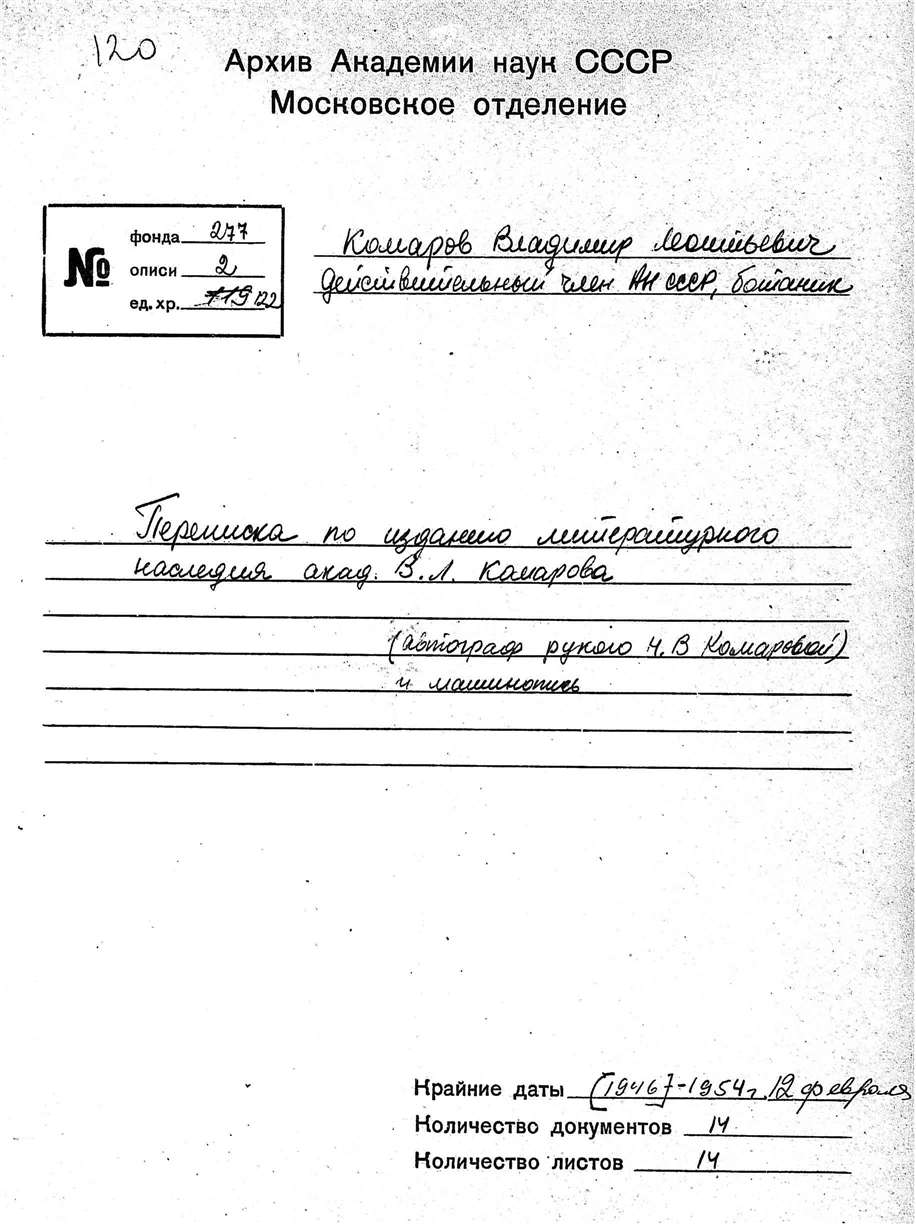 120
Архив Академии наук СССР
Московское отделение
№
фонда 277
описи 2
ед. хр. 119 122
Комаров Владимир Леонтьевич
действительный член АН СССР, ботаник
Переписка по изданию литературного
наследия акад. В.Л. Комарова
(автограф рукою Н.В Комаровой)
и машинопись
Крайние даты [1946]-1954г. 12 февраля
Количество документов 14
Количество листов 14